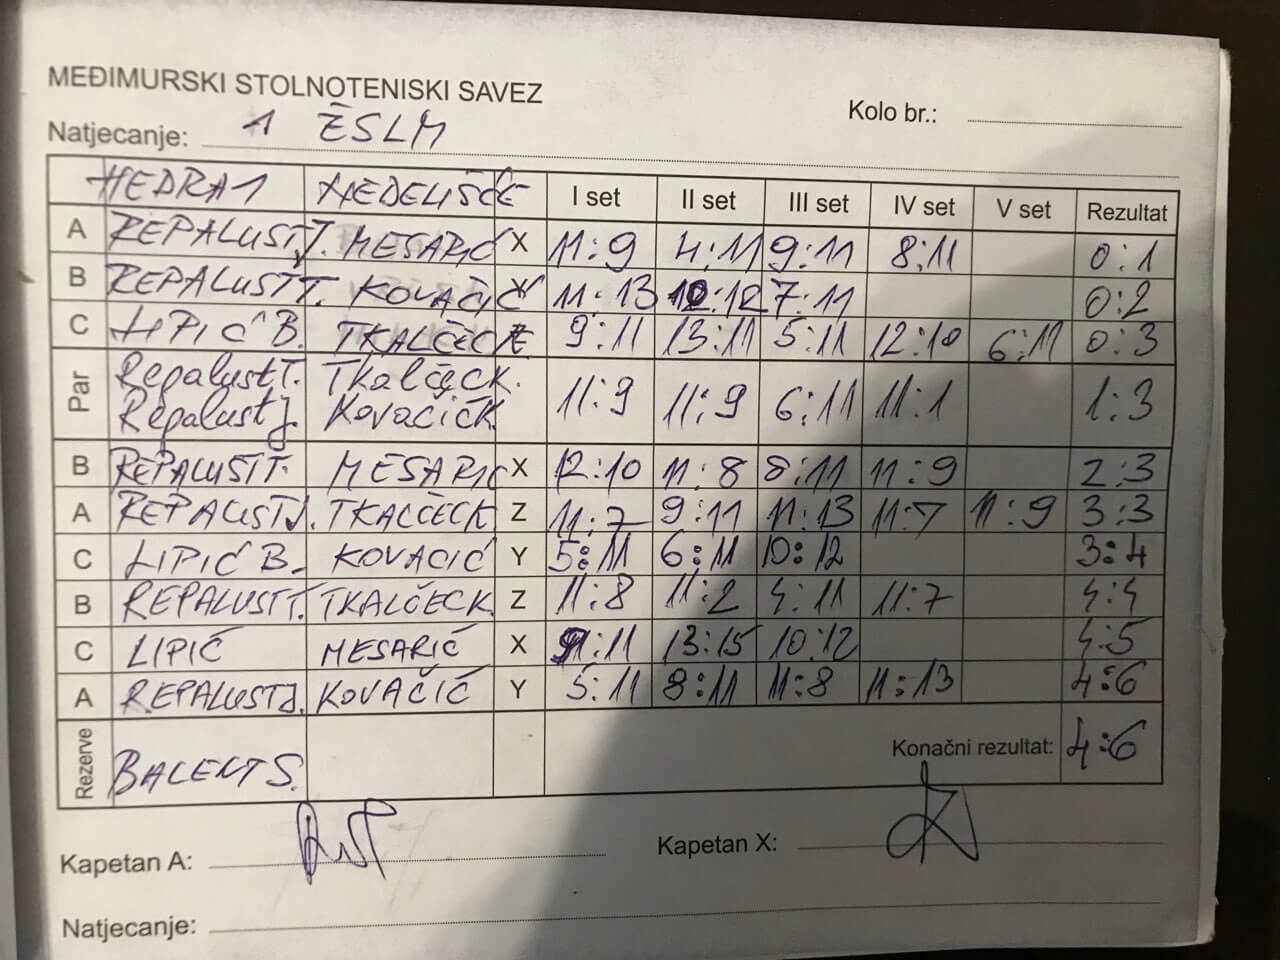 MEĐIMURSKI STOLNOTENISKI SAVEZ
Kolo br.:
Natjecanje: 1 ŽSLM
HEDRA 1 NEDELIŠĆE I set II set III set IV set V set Rezultat
A REPALUST J. MESARIĆ X 11:9 4:11 9:11 8:11 0:1
B REPALUST T. KOVAČIĆ 11:13 10:12 7:11 0:2
C LIPIĆ B. TKALČEC K. 9:11 13:11 5:11 12:10 6:11 0:3
Par Repalust T. Tkalčec K. 11:9 11:9 6:11 11:1 1:3
Repalust J. Kovačić K.
B REPALUST T. MESARIĆ X 12:10 11:8 8:11 11:9 2:3
A REPALUST J. TKALČEC K. Z 11:7 9:11 11:13 11:7 11:9 3:3
C LIPIĆ B. KOVAČIĆ Y 5:11 6:11 10:12 3:4
B REPALUST T. TKALČEC K. Z 11:8 11:2 4:11 11:7 4:4
C LIPIĆ MESARIĆ X 9:11 13:15 10:12 4:5
A REPALUST J. KOVAČIĆ Y 5:11 8:11 11:8 11:13 4:6
Rezerve BALENT S. Konačni rezultat: 4:6
Kapetan A: Kapetan X:
Natjecanje: